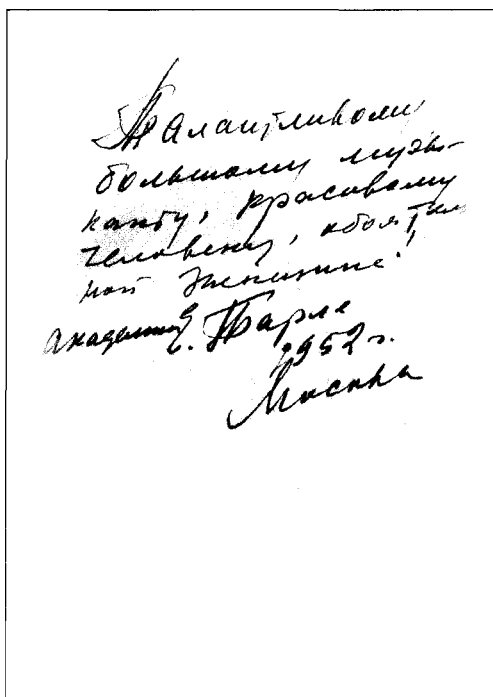 Талантливому
большому музы-
канту, красивому
человеку, обаятель-
ной женщине!
академик Е. Тарле
1952 г.
Москва